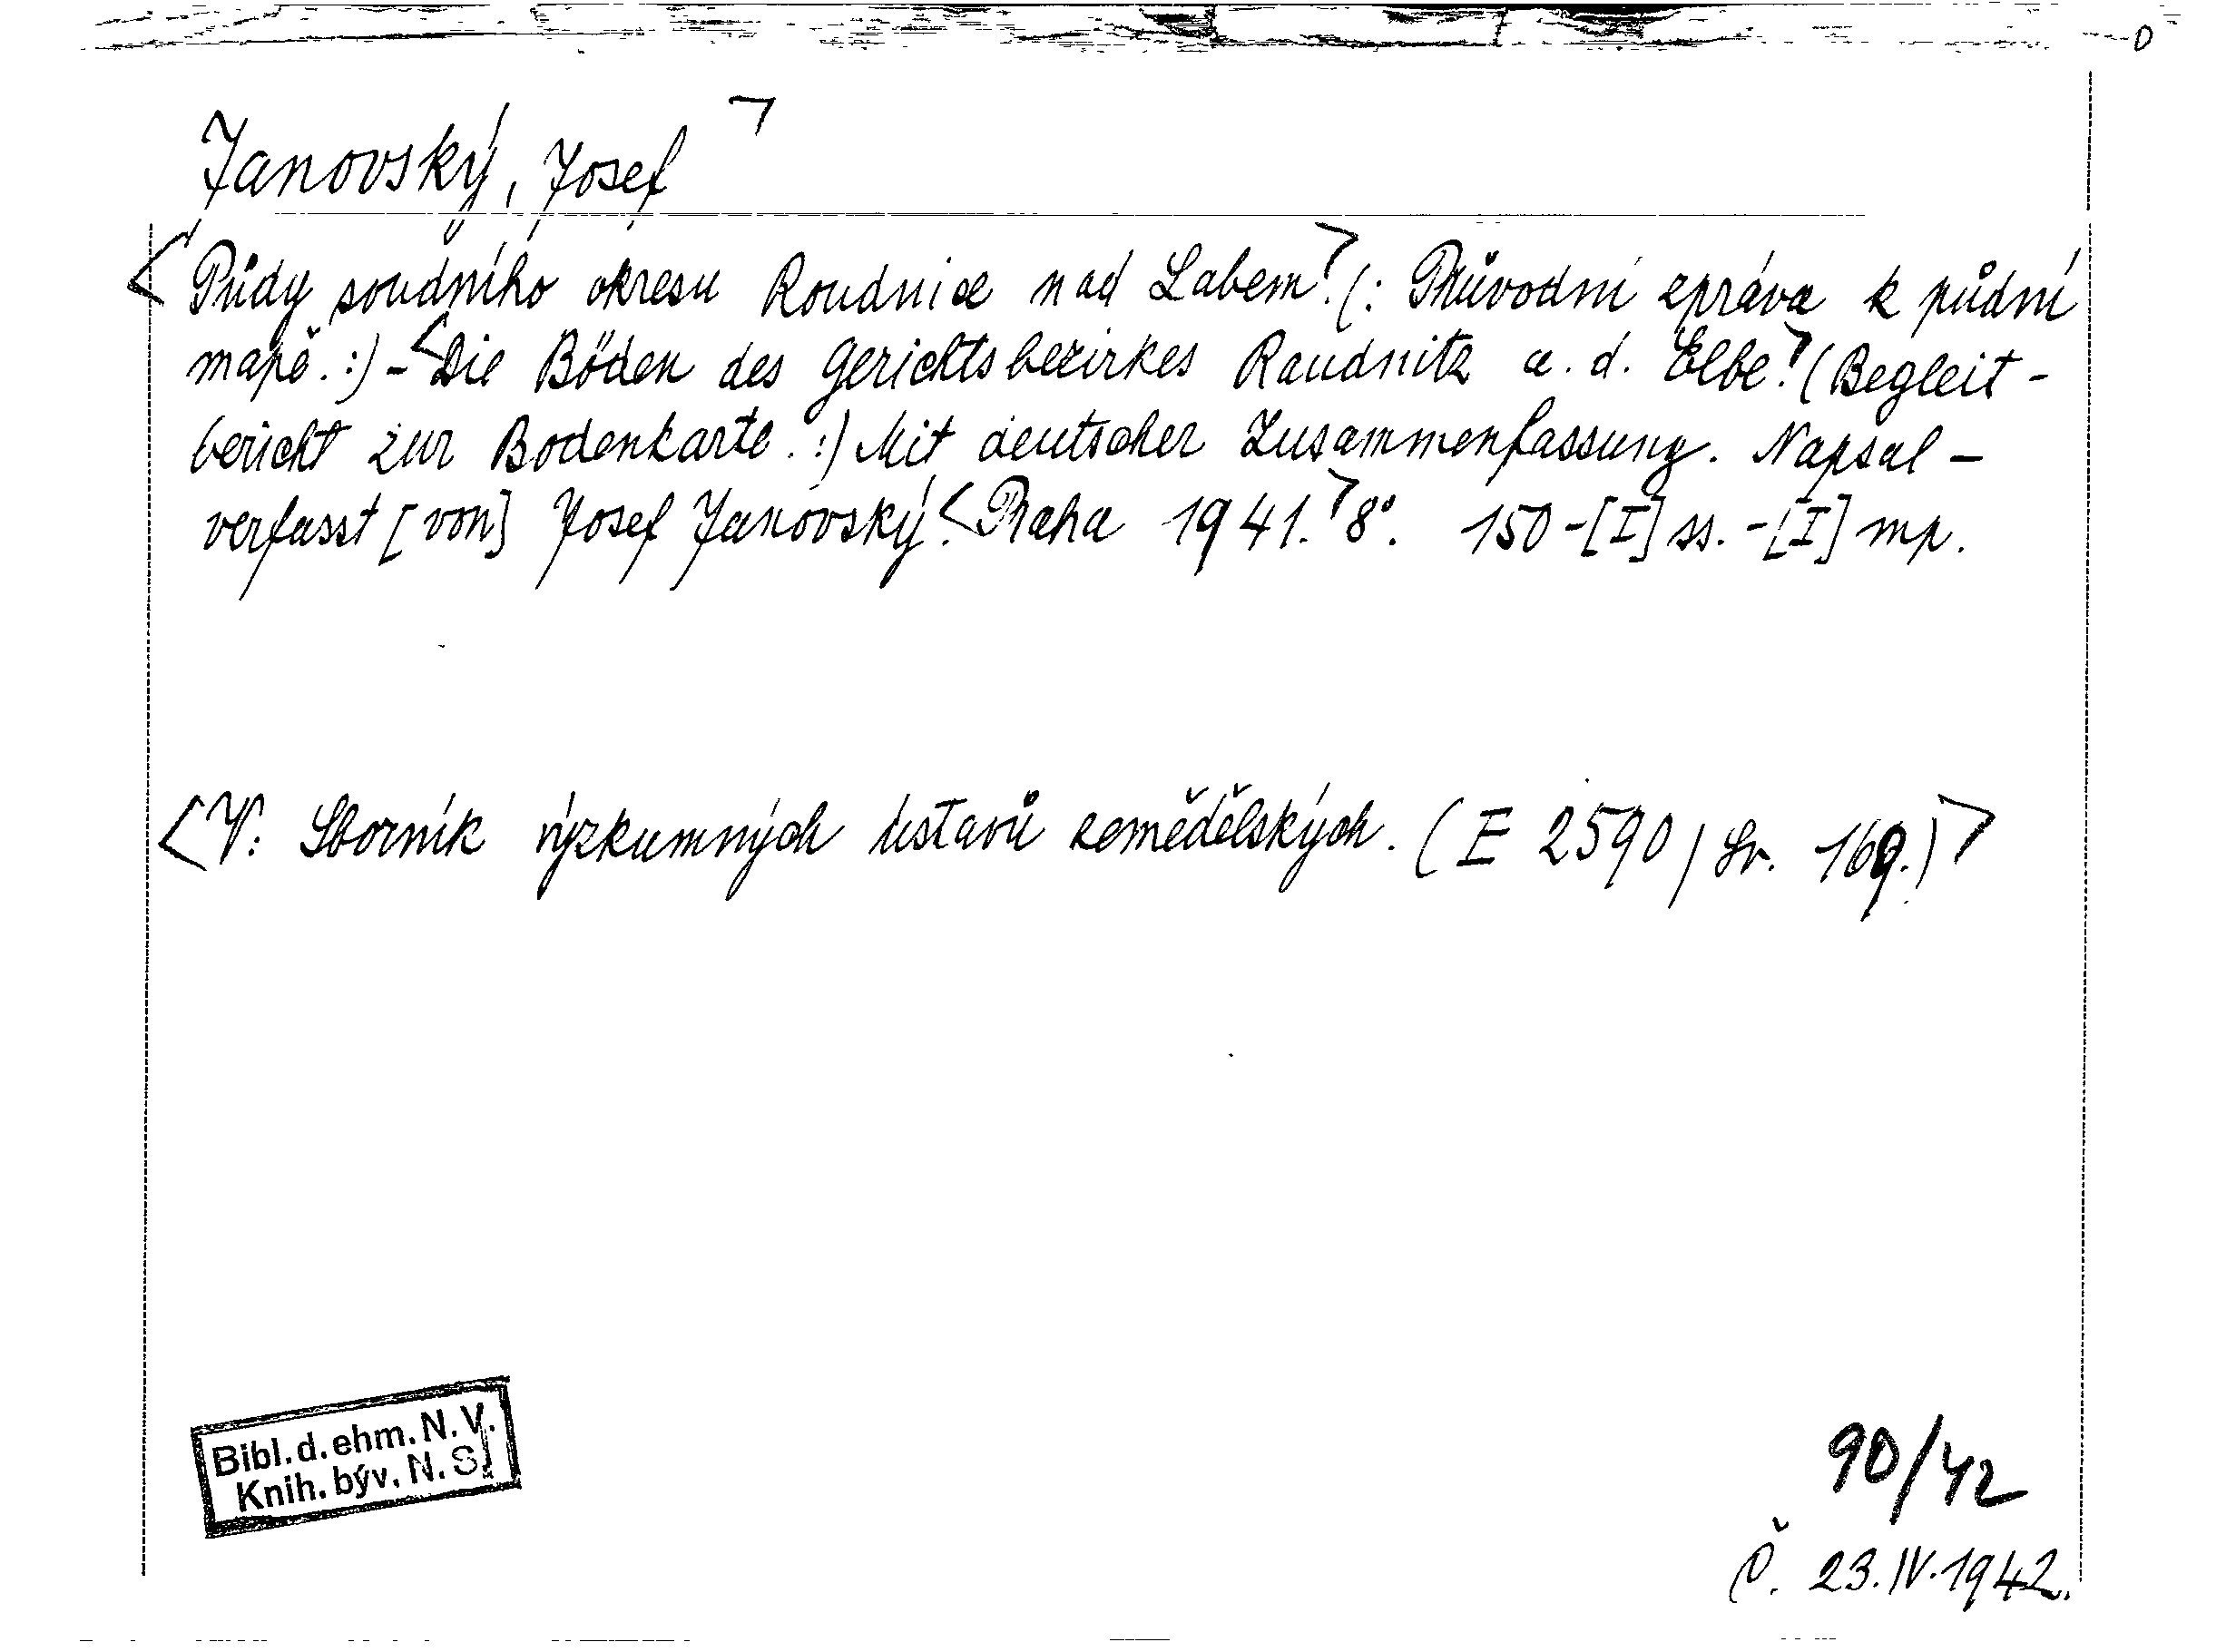 Janovský, Josef >
<Půdy soudního okresu Roudnice nad Labem.> (: Průvodní zpráva k půdní
mapě. :) - <Die Böden des Gerichtsbezirkes Raudnitz a. d. Elbe.> (Begleit-
bericht zur Bodenkarte. :) Mit deutscher Zusammenfassung. Napsal -
verfasst [von] Josef Janovský. <Praha 1941.> 8°. 150-[I] ss. -[I] mp.
<V: Sborník výzkumných ústavů zemědělských. (E 2590/Sv. 169.)>
Bibl. d. ehm. N. V.
Knih. býv. N. S.
90/42
Č. 23.IV.1942.